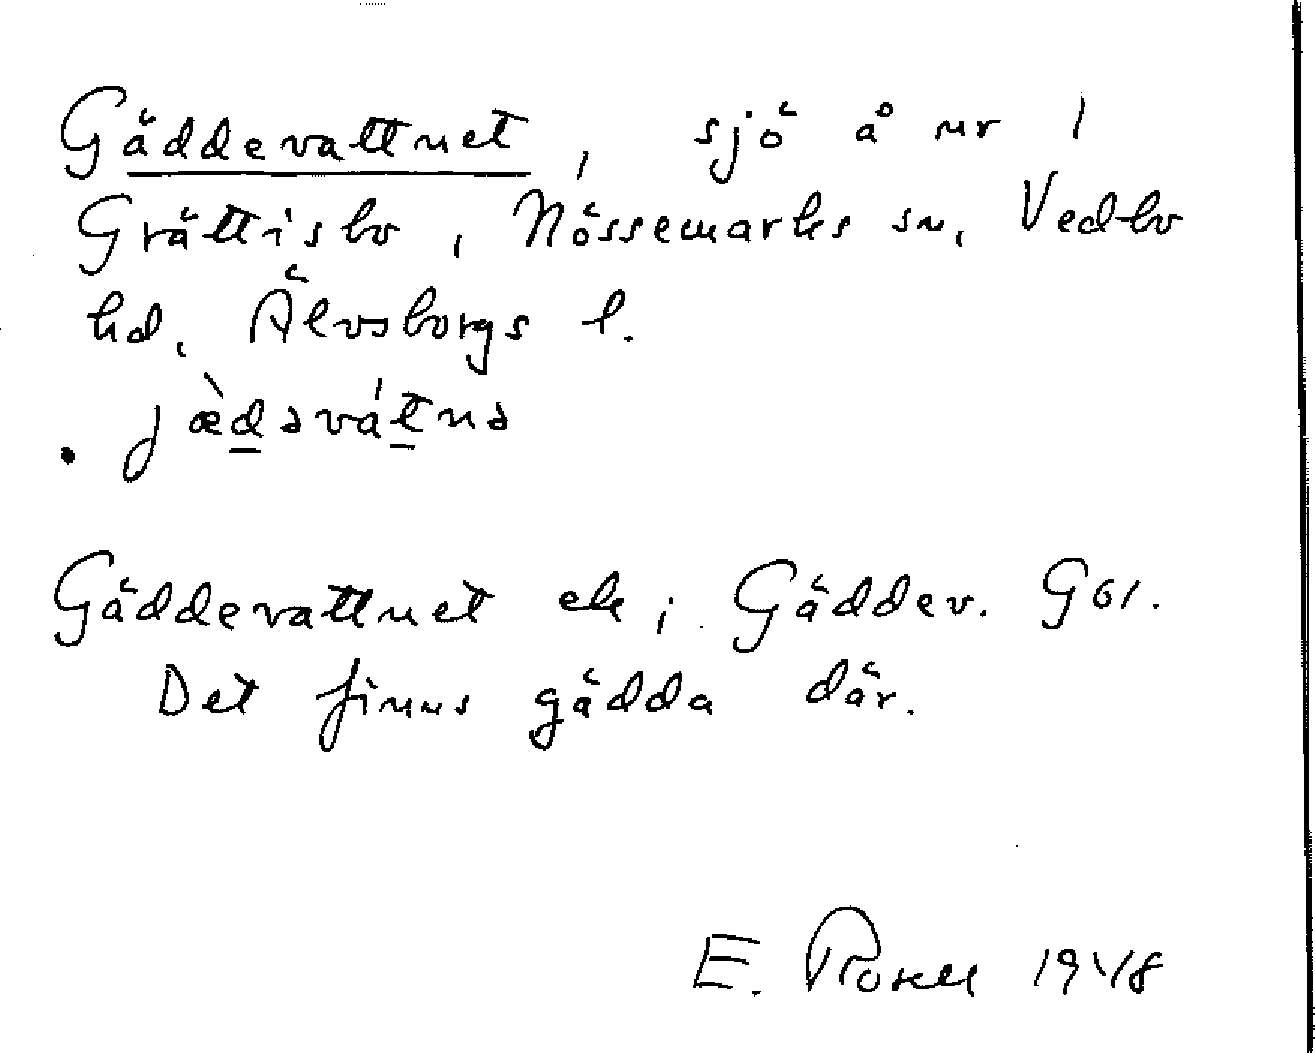 Gäddevattnet, sjö å nr 1
Grättisbo, Nössemarks sn, Vedbo
hd, Älvsborgs l.
. jæ̀dəvátnə
Gäddevattnet ek; Gäddev. G61.
Det finns gädda där.
E. Rosell 1948